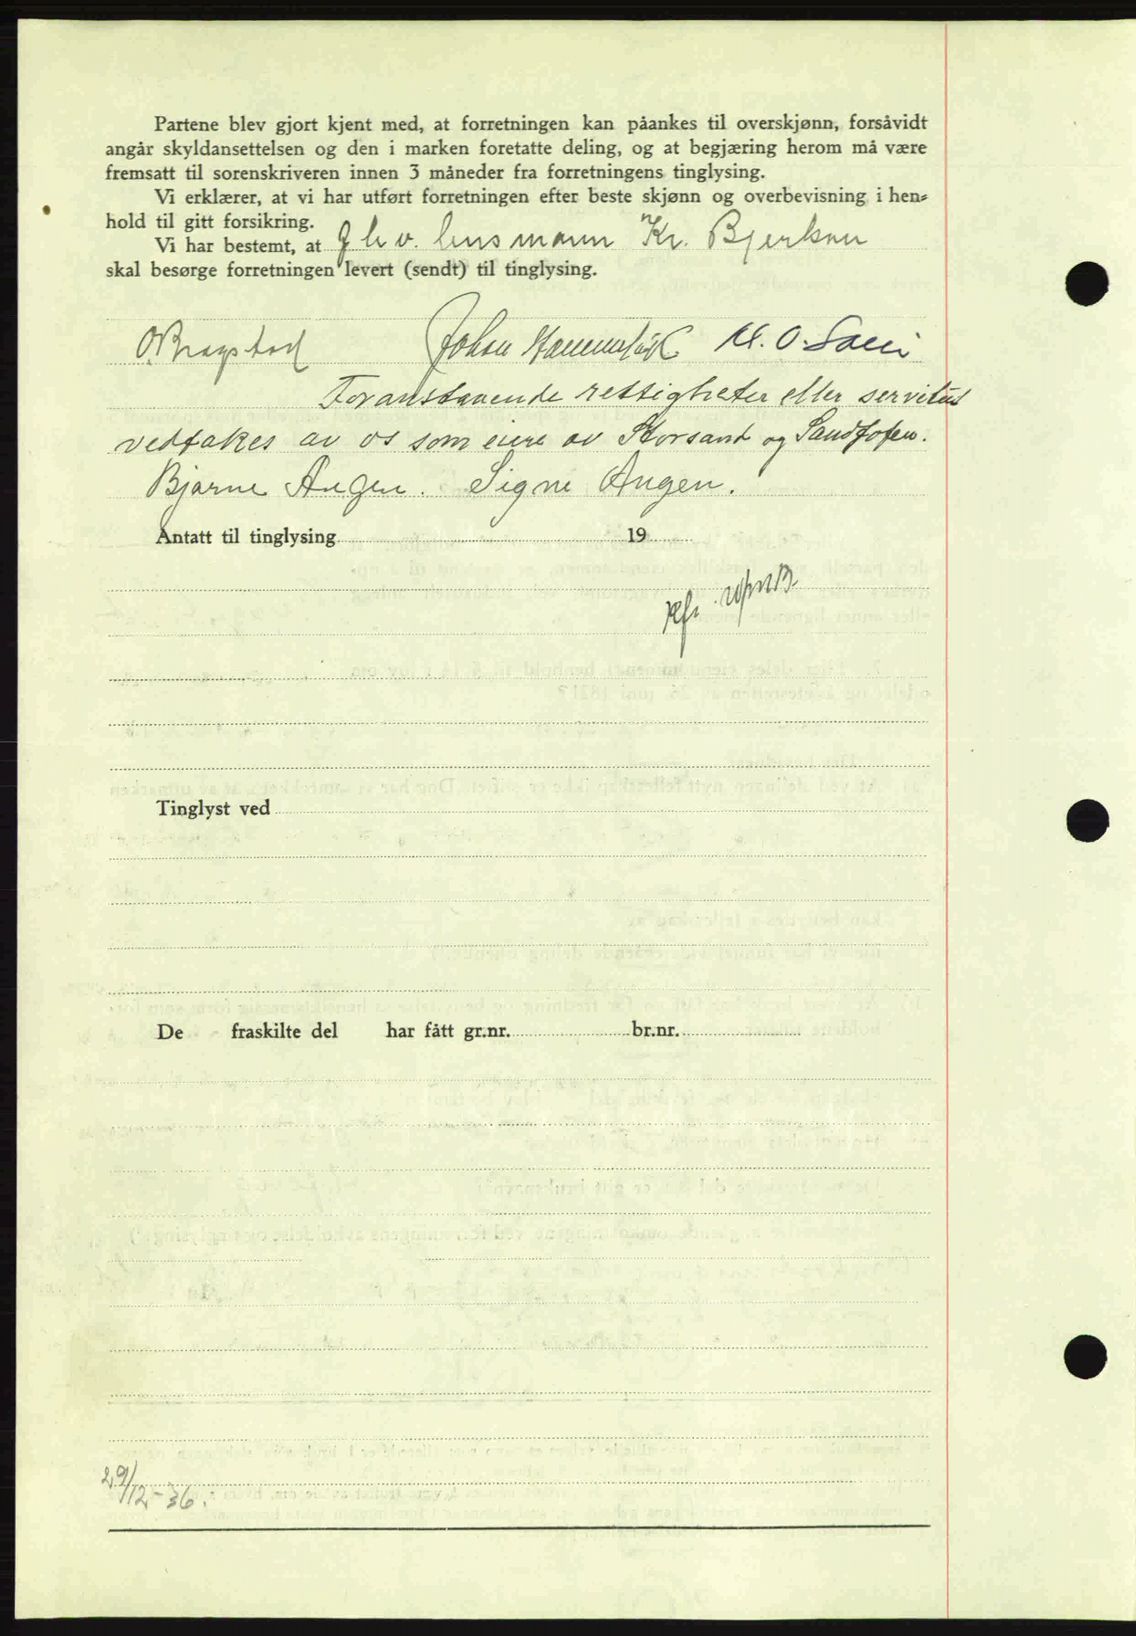 Partene blev gjort kjent med, at forretningen kan påankes til overskjønn, forsåvidt
angår skyldansettelsen og den i marken foretatte deling, og at begjæring herom må være
fremsatt til sorenskriveren innen 3 måneder fra forretningens tinglysing.
Vi erklærer, at vi har utført forretningen efter beste skjønn og overbevisning i hen-
hold til gitt forsikring.
Vi har bestemt, at fhv. lensmann Kr. Bjerkan
skal besørge forretningen levert (sendt) til tinglysing.
O Bragstad Johan M. O. Sain
Foranstaaende rettigheter eller servitut
vedtakes av os som eiere av Storsand og
Bjarne Angen. Signe Angen.
Antatt til tinglysing 19
Tinglyst ved
De fraskilte del har fått gr.nr. br.nr.
29/12-36.